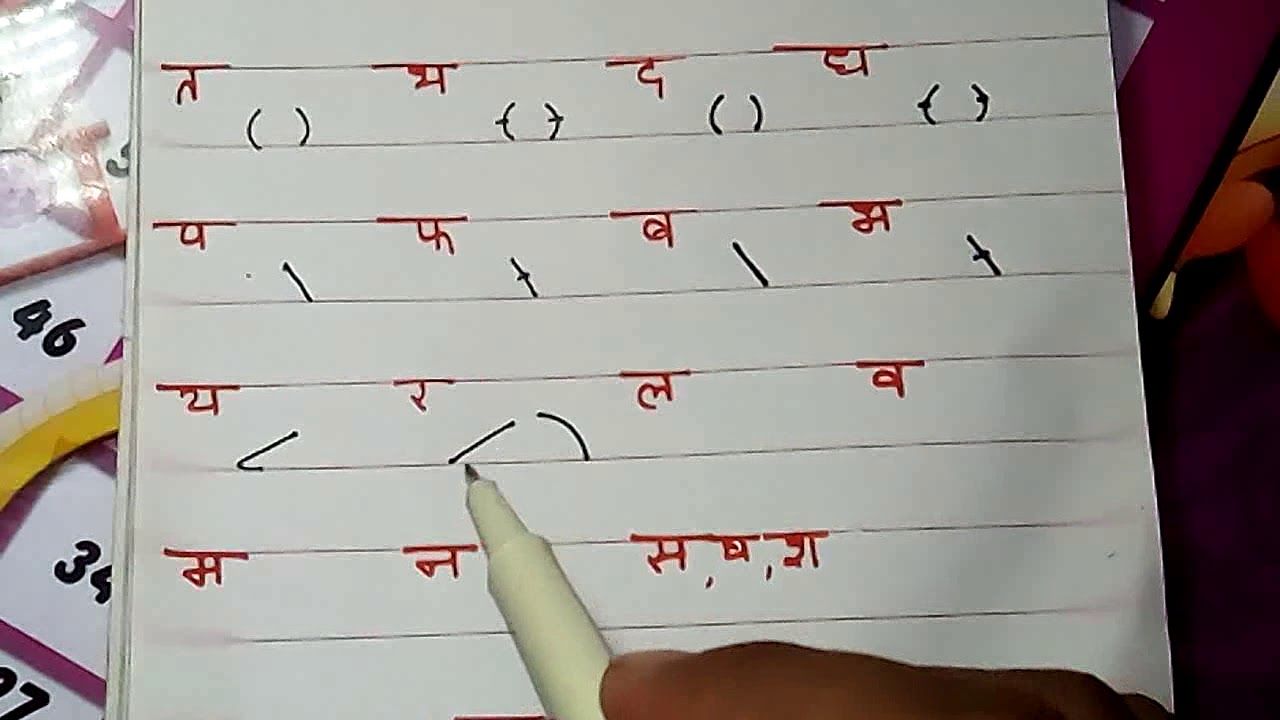 त थ द ध
प फ ब भ
य र ल व
म न स, ष, श
46
34